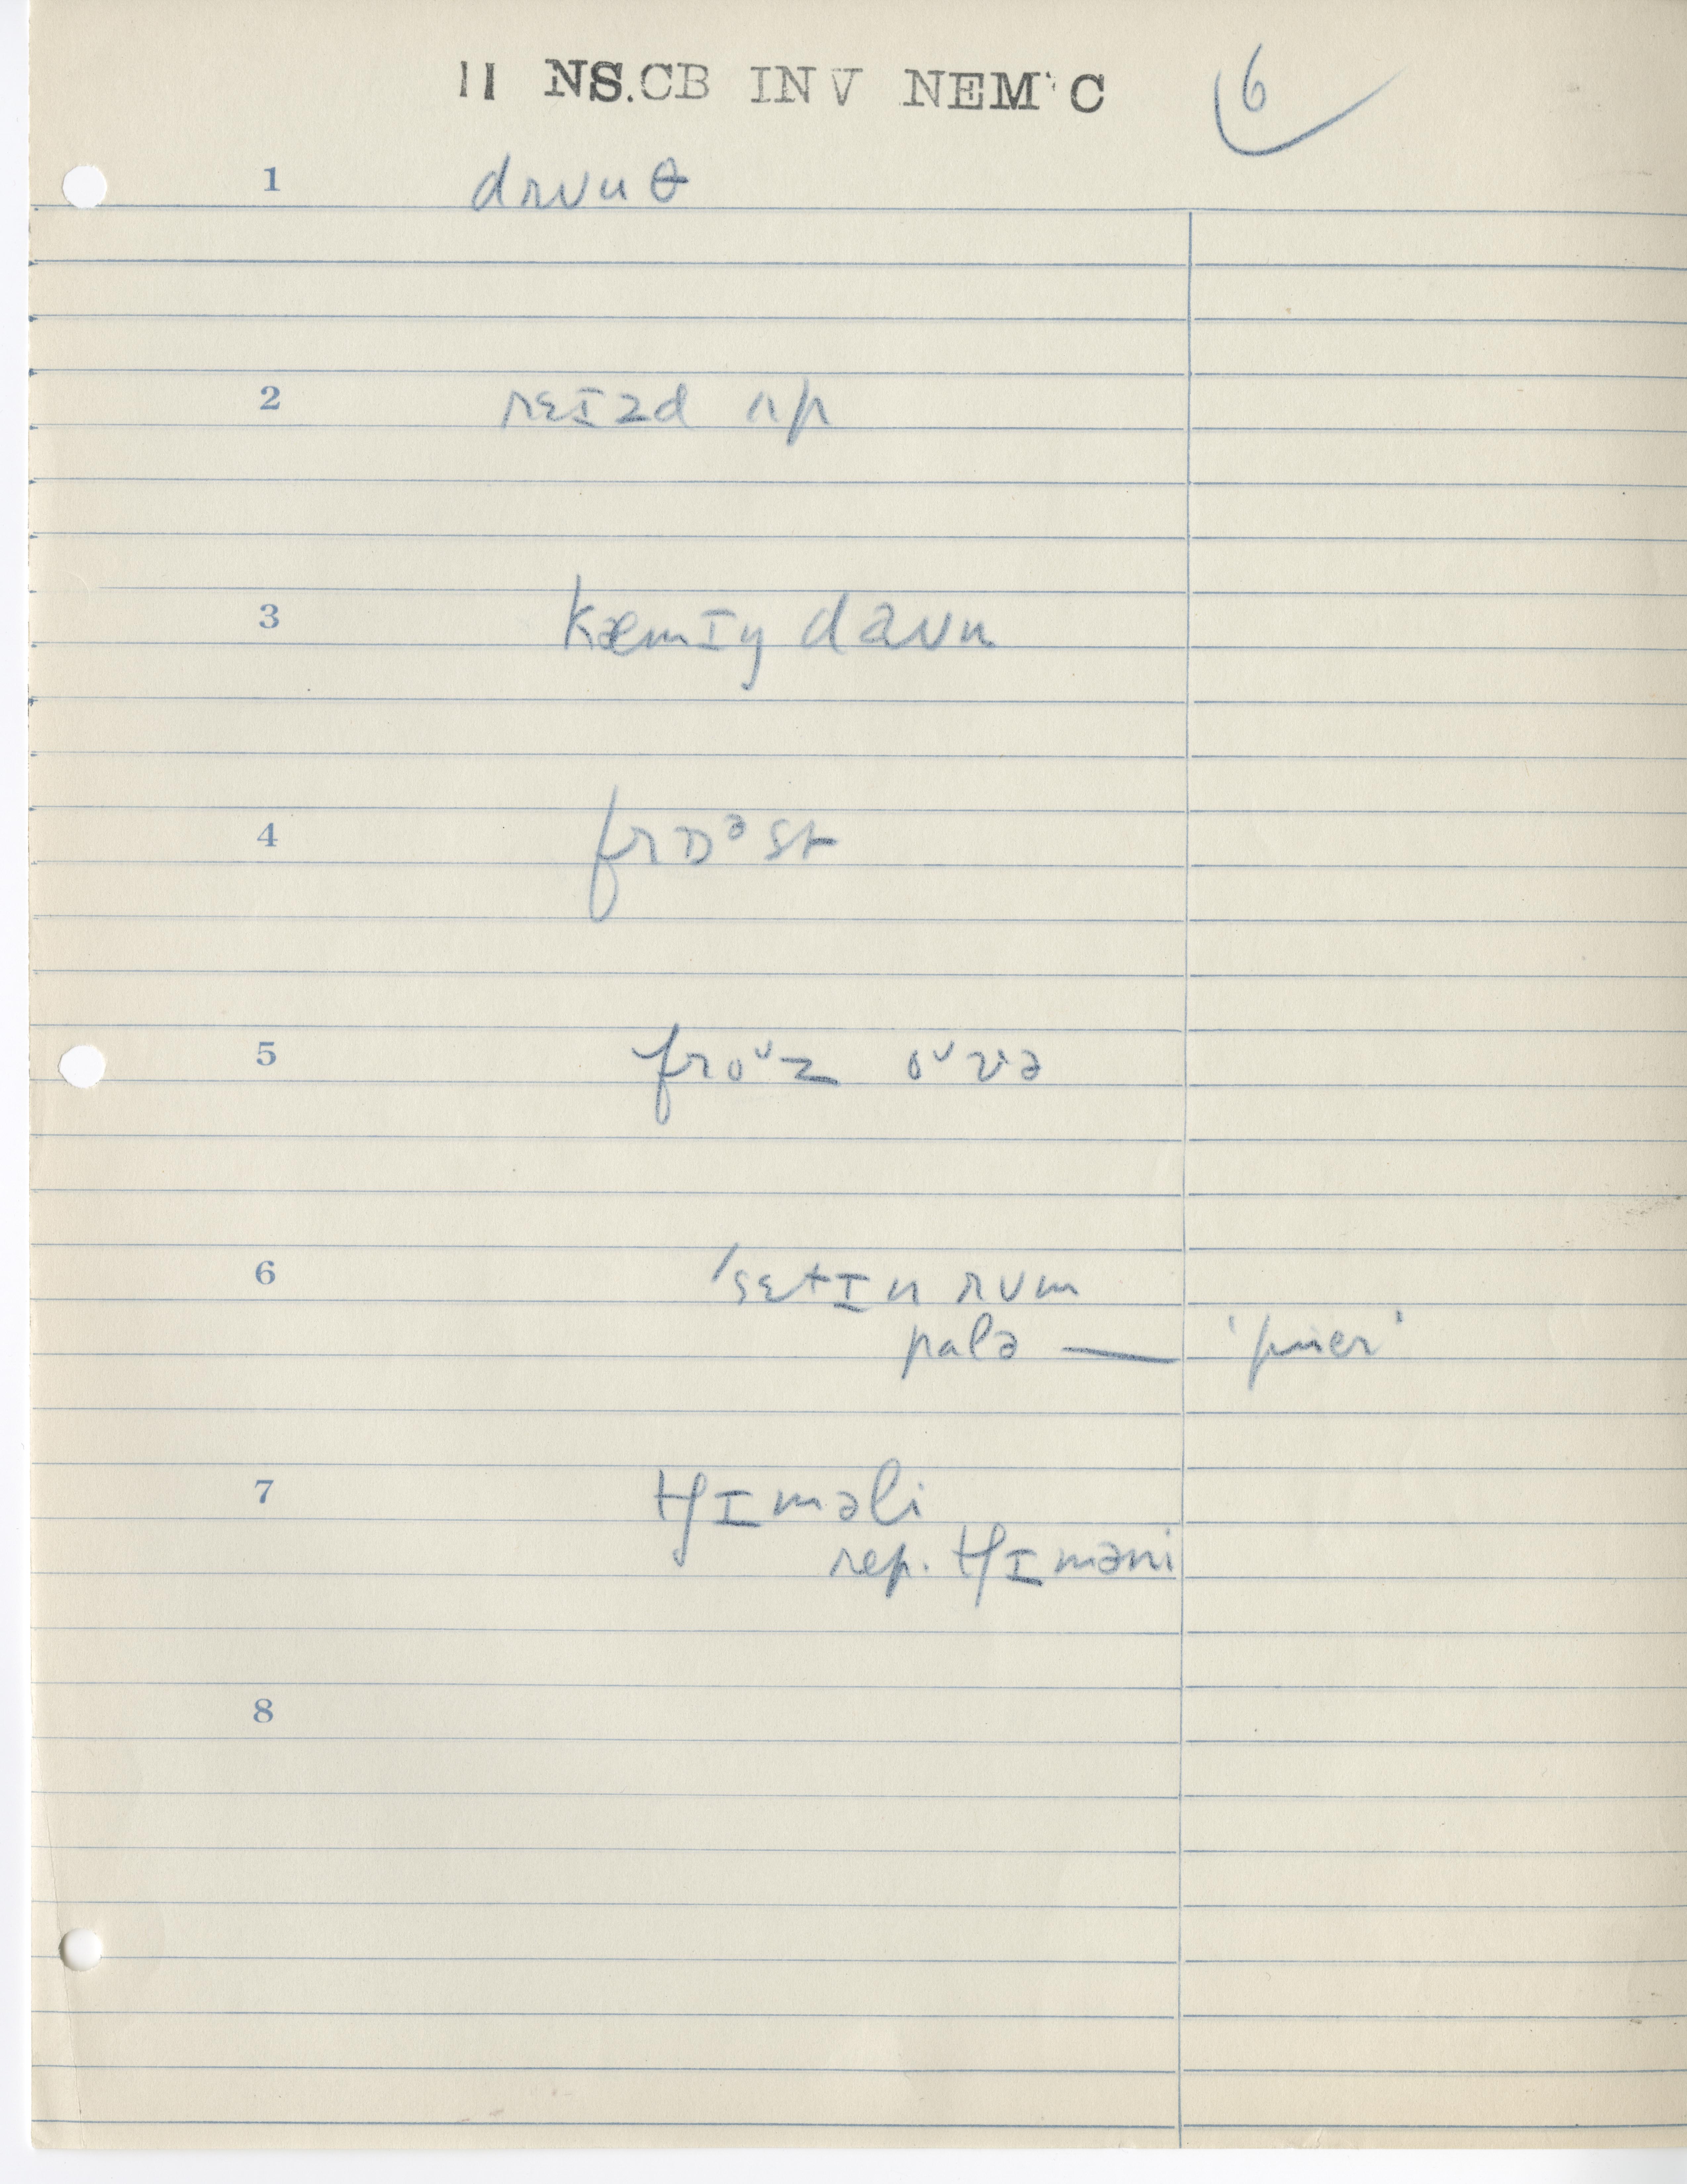 11 NS.CB INV NEM'C 6
1 drʋuθ
2 rɛɪzd ʌp
3 kæmɪŋ daʋn
4 frɒᵊst
5 froᶸz oᶸvə
6 'sɛtɪn rʋm
palə —
7 tʃɪməli
rep. tʃɪməni
8